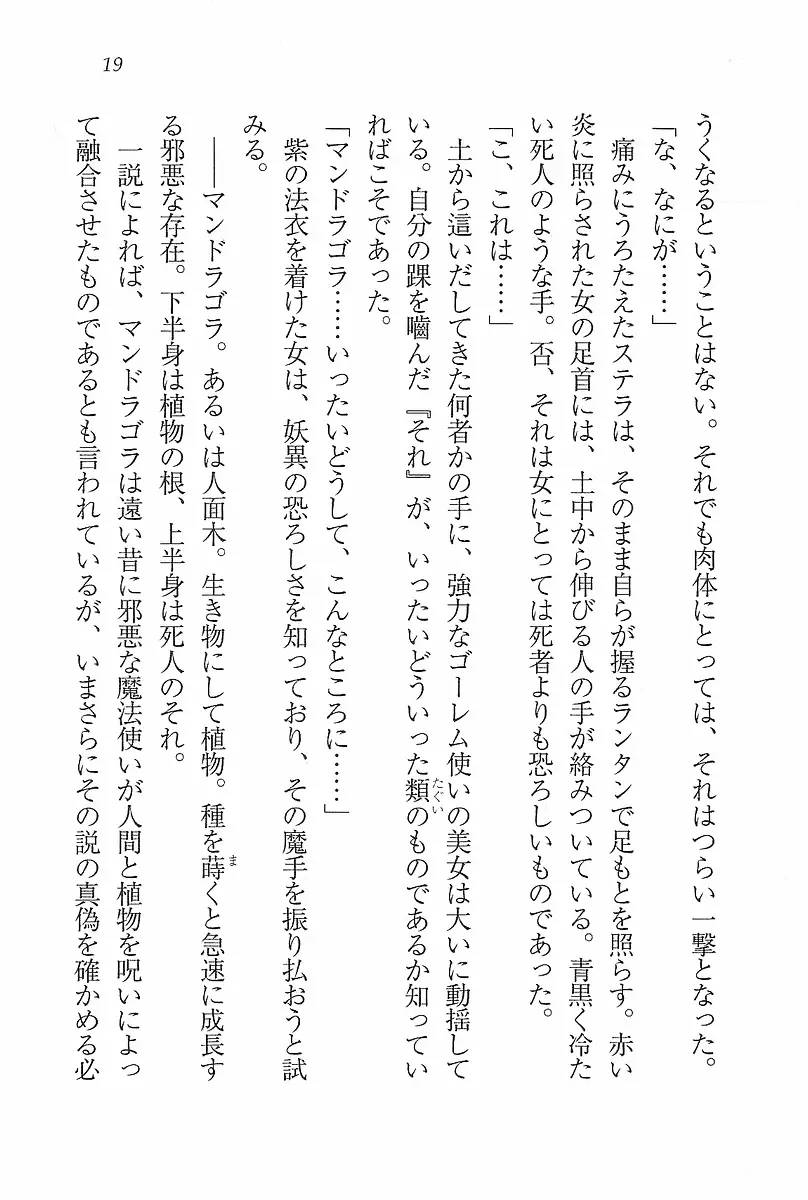 19
うくなるということはない。それでも肉体にとっては、それはつらい一撃となった。
「な、なにが……」
痛みにうろたえたステラは、そのまま自らが握るランタンで足もとを照らす。赤い
炎に照らされた女の足首には、土中から伸びる人の手が絡みついている。青黒く冷た
い死人のような手。否、それは女にとっては死者よりも恐ろしいものであった。
「こ、これは……」
土から這いだしてきた何者かの手に、強力なゴーレム使いの美女は大いに動揺して
いる。自分の踝を嚙んだ『それ』が、いったいどういった類のものであるか知ってい
たぐい
ればこそであった。
「マンドラゴラ……いったいどうして、こんなところに……」
紫の法衣を着けた女は、妖異の恐ろしさを知っており、その魔手を振り払おうと試
みる。
――マンドラゴラ。あるいは人面木。生き物にして植物。種を蒔くと急速に成長す
ま
る邪悪な存在。下半身は植物の根、上半身は死人のそれ。
一説によれば、マンドラゴラは遠い昔に邪悪な魔法使いが人間と植物を呪いによっ
て融合させたものであるとも言われているが、いまさらにその説の真偽を確かめる必